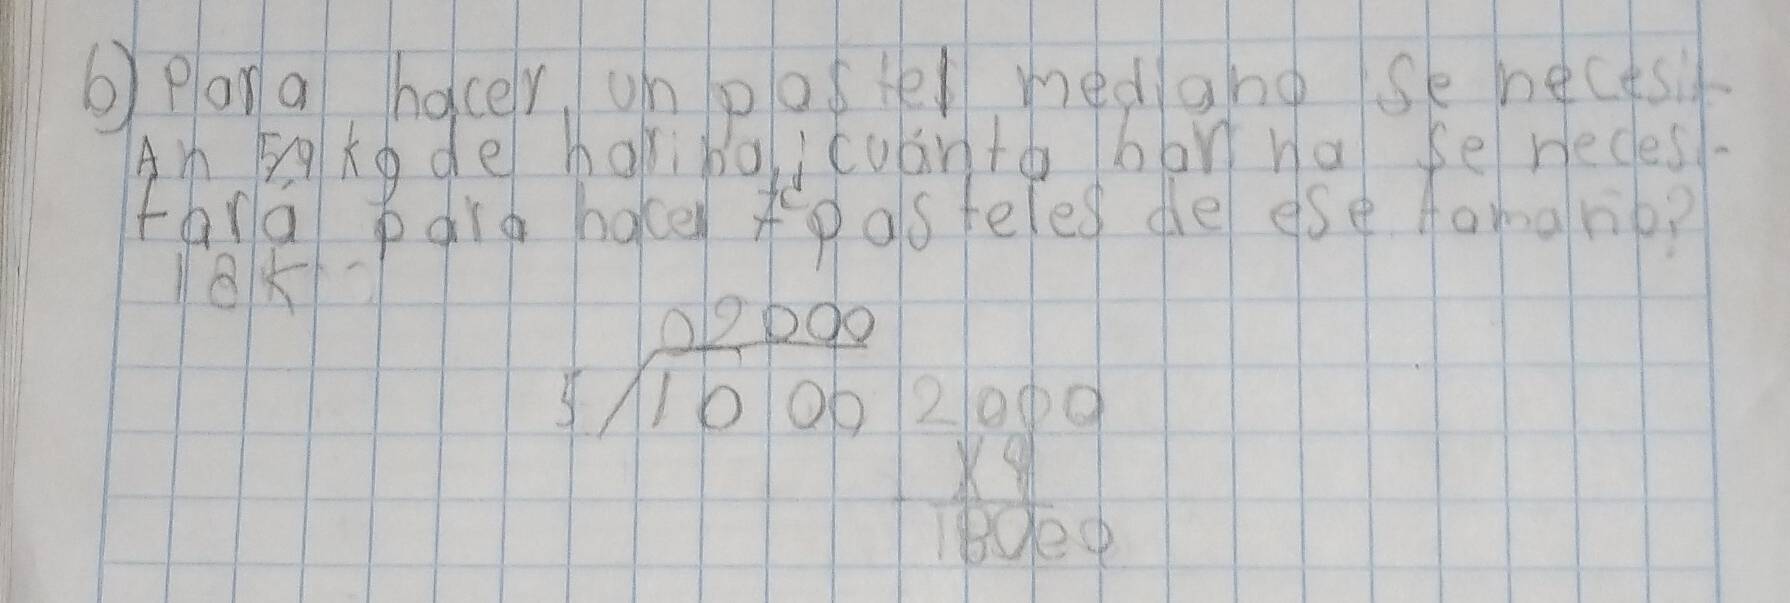 b) Para hacer un pastel mediano se necesi-
An 5/9 kg de harina, ¿cuánta harina se necesi-
tará para hacer pasteles de ese tamaño?
18 k
02000
5 1000 2000
x9
18000